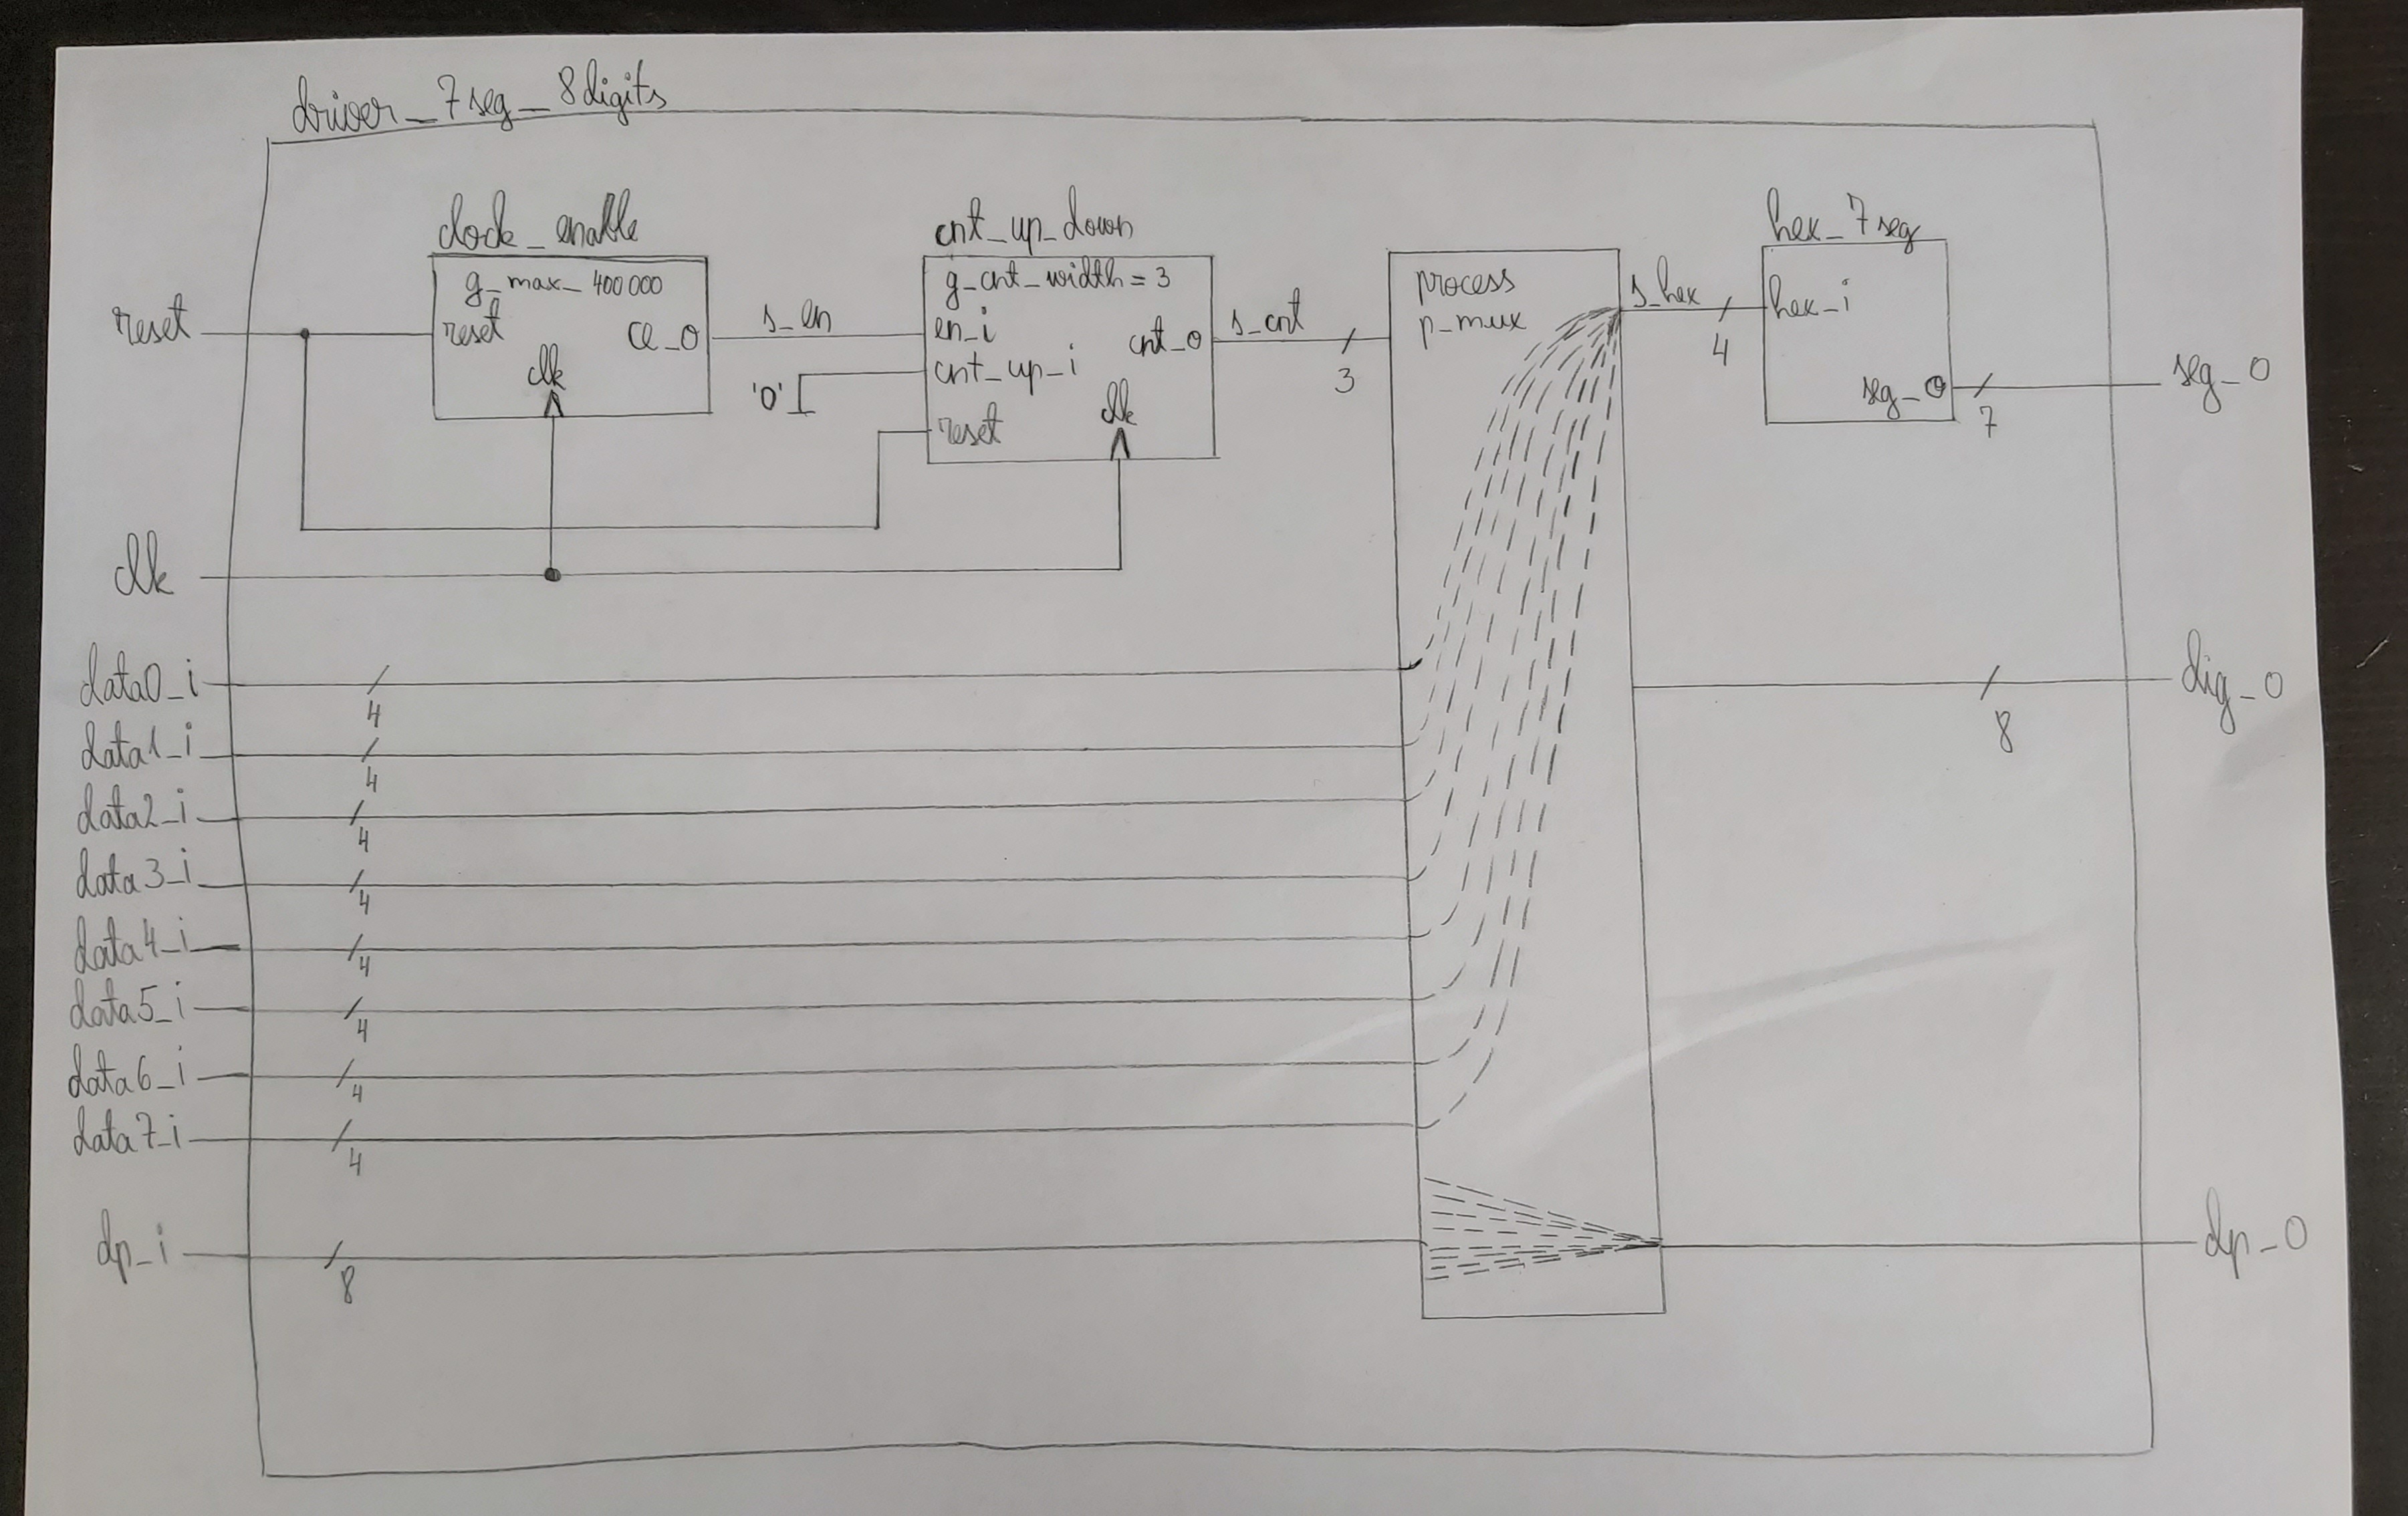 driver_7seg_8digits
clock_enable
g_max_400000
reset
ce_o
clk
s_en
cnt_up_down
g_cnt_width = 3
en_i
cnt_o
cnt_up_i
'0'
reset
clk
s_cnt
3
process
p_mux
s_hex
4
hex_7seg
hex_i
seg_o
7
seg_o
reset
clk
data0_i
4
data1_i
4
data2_i
4
data3_i
4
data4_i
4
data5_i
4
data6_i
4
data7_i
4
dp_i
8
dig_o
8
dp_o